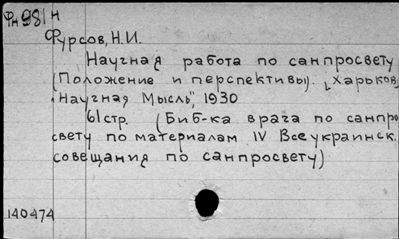 Фн 981 н
Фурсов, Н.И.
Научная работа по санпросвету
(Положение и перспективы). [Харьков,
"Научная Мысль", 1930
61 стр. (Биб-ка врача по санпро
свету по материалам IV Всеукраинск.
совещания по санпросвету)
140474